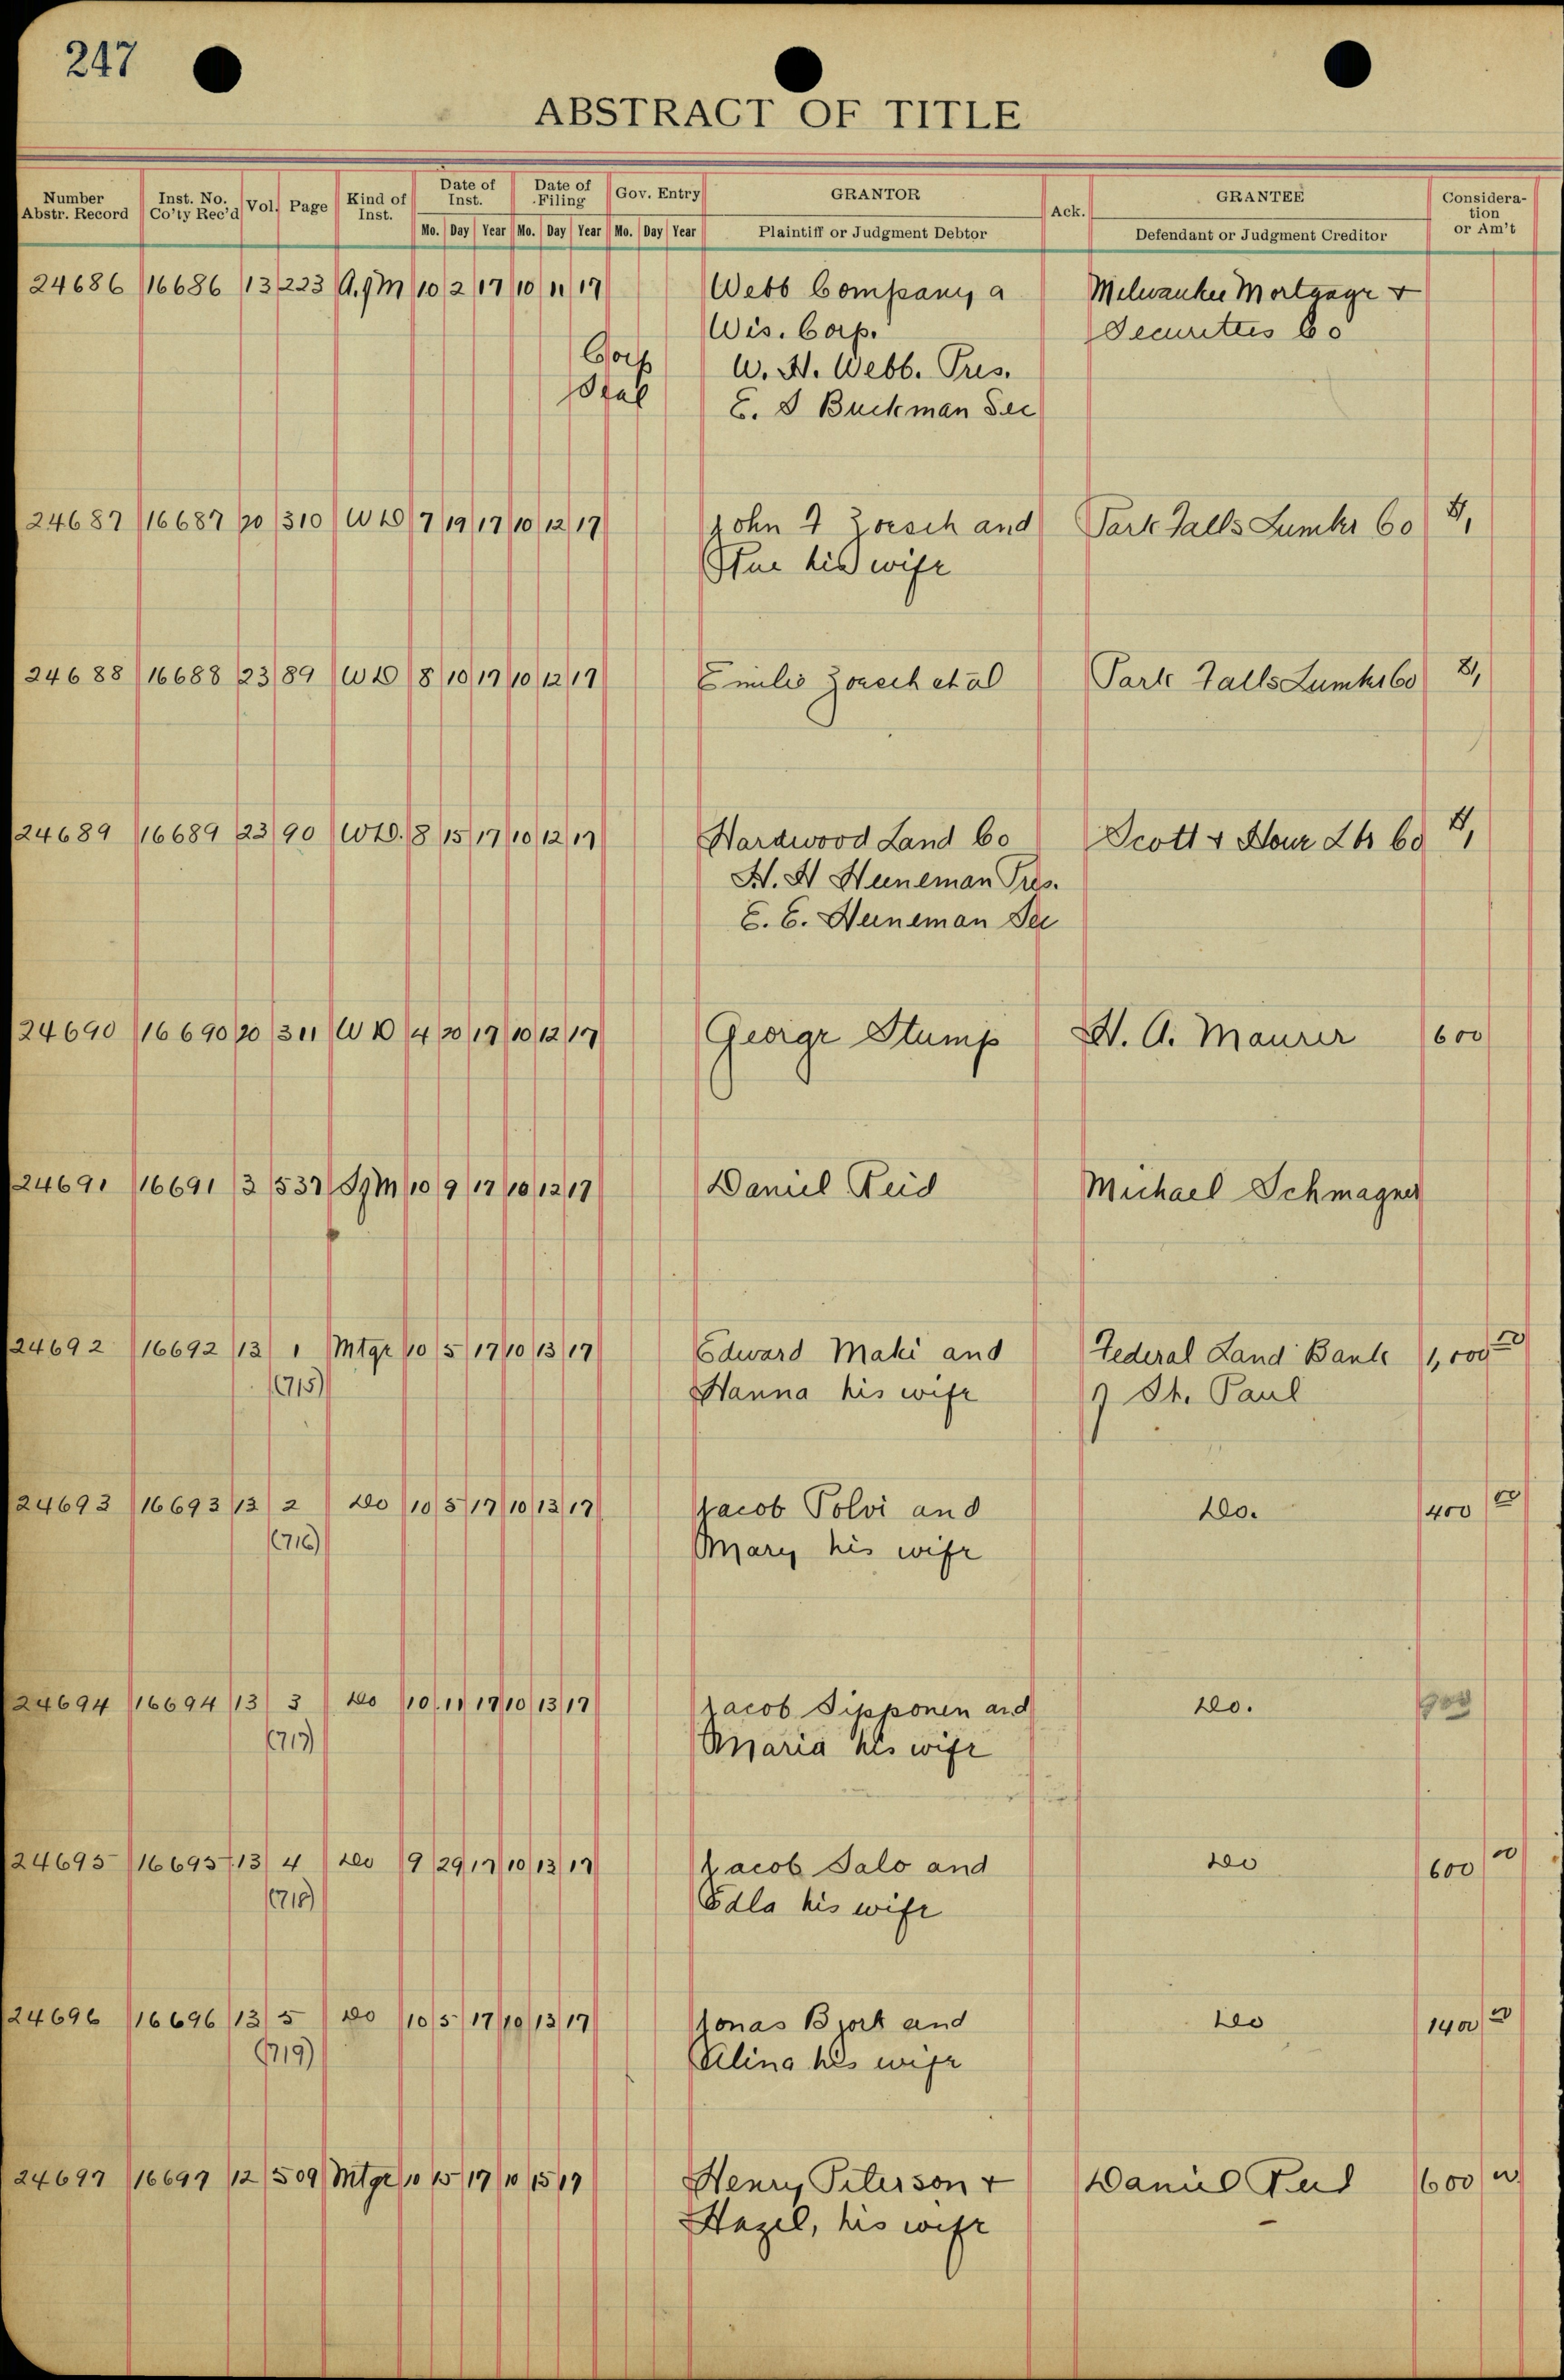 247
ABSTRACT OF TITLE
Number Abstr. Record Inst. No. Co'ty Rec'd Vol. Page Kind of Inst. Date of Inst. Date of Filing Gov. Entry GRANTOR Ack. GRANTEE Consideration or Am't
Mo. Day Year Mo. Day Year Mo. Day Year Plaintiff or Judgment Debtor Defendant or Judgment Creditor
24686 16686 13 223 10 2 17 10 11 17 Webb Company a Milwaukee Mortgage +
Wis. Corp. Securities Co
Corp W. H. Webb. Pres.
Seal E. S Buckman Sec
24687 16687 20 310 WD 7 19 17 10 12 17 John F Zoesch and Park Falls Lumber Co $1,
his wife
24688 16688 23 89 WD 8 10 17 10 12 17 Emilie Zoesch et al Park Falls Lumber Co $1,
24689 16689 23 90 WD. 8 15 17 10 12 17 Hardwood Land Co Scott + Howe Lbr Co $1,
H. H Heineman Pres.
E. C. Heineman Sec
24690 16690 20 311 WD 4 20 17 10 12 17 George Stump H. A. Maurer 600
24691 16691 3 537 10 9 17 10 12 17 Daniel Reid Michael Schmagner
24692 16692 13 1 Mtge 10 5 17 10 13 17 Edward Maki and Federal Land Bank 1,000 00
(715) Hanna his wife of St. Paul
24693 16693 13 2 Do 10 5 17 10 13 17 Jacob Polvi and Do. 400 00
(716) Mary his wife
24694 16694 13 3 Do 10 11 17 10 13 17 Jacob Sipponen and Do. 900
(717) Maria his wife
24695 16695 13 4 Do 9 29 17 10 13 17 Jacob Salo and Do 600 00
(718) Edla his wife
24696 16696 13 5 Do 10 5 17 10 13 17 Jonas Bjork and Do 1400 00
(719) Alina his wife
24697 16697 12 509 Mtge 10 15 17 10 15 17 Henry Peterson + Daniel Reid 600 00
Hazel, his wife